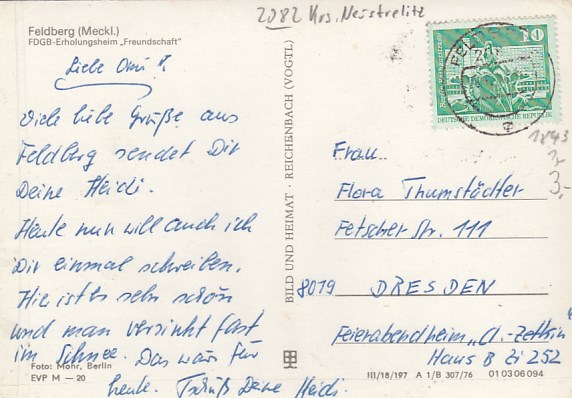 2082 Krs. Nesstrelitz
Feldberg (Meckl.)
FDGB-Erholungsheim „Freundschaft"
Liebe Omi!
Viele liebe Grüße aus
Feldberg sendet Dir
Deine Heidi.
Heute nun will auch ich
Dir einmal schreiben.
Hie ist es sehr schön
und man versinkt fast
im Schnee. Das wär's für
heute. Tschüß Deine Heidi.
Foto: Mohr, Berlin
EVP M — 20
BILD UND HEIMAT · REICHENBACH (VOGTL)
10
DEUTSCHE DEMOKRATISCHE REPUBLIK
3,-
Frau
Flora Thumstädter
Fetscher Str. 111
8019 DRESDEN
Feierabendheim „Cl.-Zetkin"
Haus B Zi 252
III/18/197 A 1/B 307/76 01 03 06 094